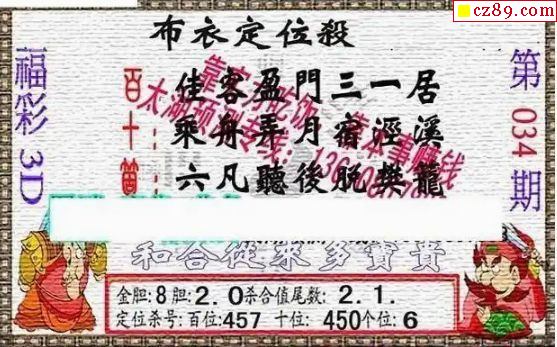 cz89.com
布衣定位殺
福彩3D
第034期
百十個
佳客盈門三一居
乘舟弄月宿涇溪
六凡聽後脫樊籠
和合從來多寶貴
金胆:8胆:2.0杀合值尾数:2.1.
定位杀号:百位:457 十位:450个位:6